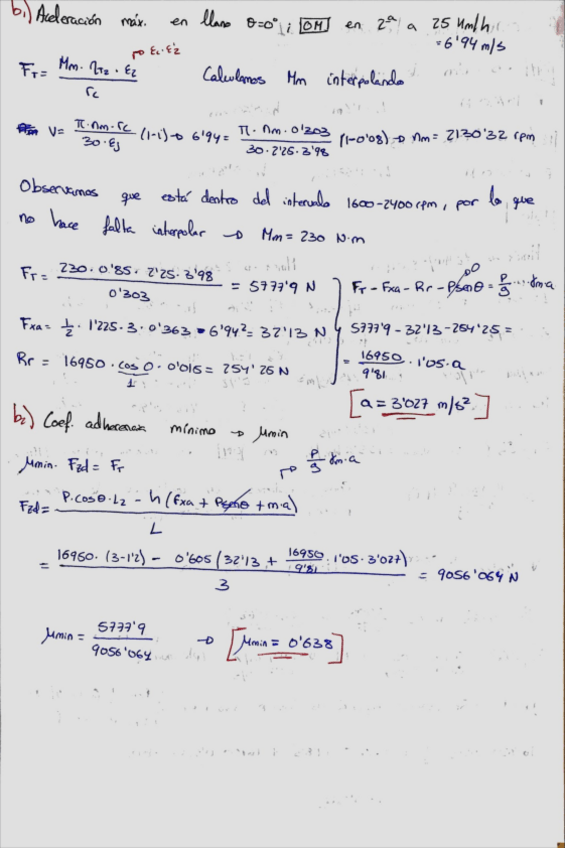 b₁) Aceleración máx. en llano θ=0° ¡ DM en 2ª a 25 Km/h
= 6'94 m/s
F_T = (Mm · η_T2 · ε₂) / r_c → ε_c · ε'₂ Calculamos Mm interpolando
V = (π · n_m · r_c) / (30 · ε_j) (1-i) → 6'94 = (π · n_m · 0'303) / (30 · 2'25 · 3'98) (1-0'08) → n_m = 2130'32 rpm
Observamos que está dentro del intervalo 1600-2400 rpm, por lo que
no hace falta interpolar → Mm = 230 N·m
F_T = (230 · 0'85 · 2'25 · 3'98) / 0'303 = 5777'9 N
Fxa = 1/2 · 1'225 · 3 · 0'363 · 6'94² = 32'13 N
Rr = 16950 · cos 0 · 0'015 = 254'25 N
1
F_T - Fxa - Rr - P senθ = P/g · γm · a
0
5777'9 - 32'13 - 254'25 =
= 16950/9'81 · 1'05 · a
[a = 3'027 m/s²]
b₂) Coef. adherencia mínimo → μmin
μmin · Fzd = F_T
P/g γm · a
Fzd = (P · cosθ · L₂ - h (Fxa + P senθ + m·a)) / L
= (16950 · (3-1'2) - 0'605 (32'13 + 16950/9'81 · 1'05 · 3'027)) / 3 = 9056'064 N
μmin = 5777'9 / 9056'064 → [μmin = 0'638]